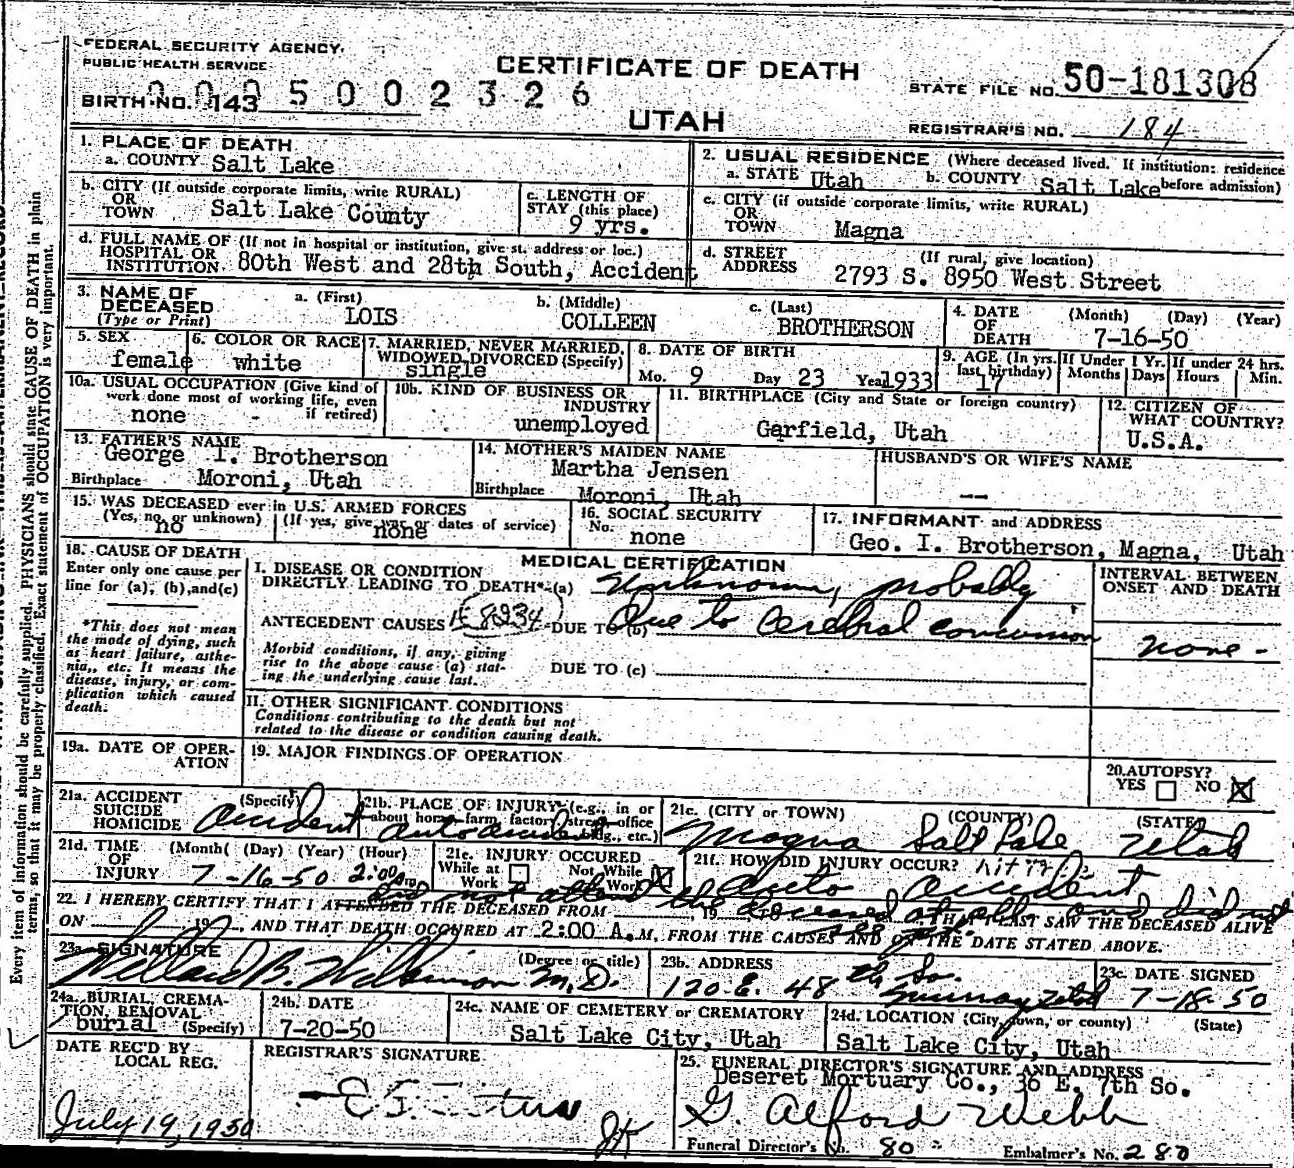 FEDERAL SECURITY AGENCY
PUBLIC HEALTH SERVICE
CERTIFICATE OF DEATH
STATE FILE NO. 50-181308
0 0 9 5 0 0 2 3 2 6
BIRTH NO. 143
UTAH
REGISTRAR'S NO. 184
1. PLACE OF DEATH
a. COUNTY Salt Lake
2. USUAL RESIDENCE (Where deceased lived. If institution: residence before admission)
a. STATE Utah b. COUNTY Salt Lake
b. CITY (If outside corporate limits, write RURAL)
OR
TOWN Salt Lake County
c. LENGTH OF
STAY (this place)
9 yrs.
c. CITY (if outside corporate limits, write RURAL)
OR
TOWN Magna
d. FULL NAME OF (If not in hospital or institution, give st. address or loc.)
HOSPITAL OR
INSTITUTION 80th West and 28th South, Accident
d. STREET (If rural, give location)
ADDRESS 2793 S. 8950 West Street
3. NAME OF
DECEASED
(Type or Print)
a. (First) b. (Middle) c. (Last)
LOIS COLLEEN BROTHERSON
4. DATE (Month) (Day) (Year)
OF
DEATH 7-16-50
5. SEX
female
6. COLOR OR RACE
white
7. MARRIED, NEVER MARRIED,
WIDOWED, DIVORCED (Specify)
single
8. DATE OF BIRTH
Mo. 9 Day 23 Year 1933
9. AGE (In yrs. last birthday)
17
If Under 1 Yr.
Months Days
If under 24 hrs.
Hours Min.
10a. USUAL OCCUPATION (Give kind of
work done most of working life, even
if retired)
none
10b. KIND OF BUSINESS OR
INDUSTRY
unemployed
11. BIRTHPLACE (City and State or foreign country)
Garfield, Utah
12. CITIZEN OF
WHAT COUNTRY?
U.S.A.
13. FATHER'S NAME
George I. Brotherson
Birthplace Moroni, Utah
14. MOTHER'S MAIDEN NAME
Martha Jensen
Birthplace Moroni, Utah
HUSBAND'S OR WIFE'S NAME
--
15. WAS DECEASED ever in U.S. ARMED FORCES
(Yes, no, or unknown) (If yes, give war or dates of service)
no none
16. SOCIAL SECURITY
No.
none
17. INFORMANT and ADDRESS
Geo. I. Brotherson, Magna, Utah
18. CAUSE OF DEATH
Enter only one cause per
line for (a), (b), and (c)
*This does not mean
the mode of dying, such
as heart failure, asthe-
nia, etc. It means the
disease, injury, or com-
plication which caused
death.
MEDICAL CERTIFICATION
I. DISEASE OR CONDITION
DIRECTLY LEADING TO DEATH* (a) unknown, probably
ANTECEDENT CAUSES E8234 DUE TO (b) Due to Cerebral concussion
Morbid conditions, if any, giving
rise to the above cause (a) stat-
ing the underlying cause last.
DUE TO (c)
INTERVAL BETWEEN
ONSET AND DEATH
none -
II. OTHER SIGNIFICANT CONDITIONS
Conditions contributing to the death but not
related to the disease or condition causing death.
19a. DATE OF OPER-
ATION
19. MAJOR FINDINGS OF OPERATION
20. AUTOPSY?
YES NO X
21a. ACCIDENT (Specify)
SUICIDE
HOMICIDE
Accident
21b. PLACE OF INJURY (e.g., in or
about home, farm, factory, street, office
bldg., etc.)
auto accident
21c. (CITY or TOWN) (COUNTY) (STATE)
Magna Salt Lake Utah
21d. TIME (Month) (Day) (Year) (Hour)
OF
INJURY 7-16-50 2:00
21e. INJURY OCCURED
While at Work Not While Work X
21f. HOW DID INJURY OCCUR?
Auto accident
22. I HEREBY CERTIFY THAT I ATTENDED THE DECEASED FROM 19 TO THAT I LAST SAW THE DECEASED ALIVE
did not attend the deceased at all and did not
ON 19, AND THAT DEATH OCCURED AT 2:00 A.M, FROM THE CAUSES AND ON THE DATE STATED ABOVE.
23a. SIGNATURE (Degree or title)
Willard B. Wilkinson M.D.
23b. ADDRESS
120 E. 48th So.
Utah
23c. DATE SIGNED
7-18-50
24a. BURIAL, CREMA-
TION, REMOVAL
burial (Specify)
24b. DATE
7-20-50
24c. NAME OF CEMETERY or CREMATORY
Salt Lake City, Utah
24d. LOCATION (City, town, or county) (State)
Salt Lake City, Utah
DATE REC'D BY
LOCAL REG.
July 19, 1950
REGISTRAR'S SIGNATURE
25. FUNERAL DIRECTOR'S SIGNATURE AND ADDRESS
Deseret Mortuary Co., 36 E. 7th So.
G. Alford Webb
Funeral Director's No. 80 Embalmer's No. 280
Every item of information should be carefully supplied. PHYSICIANS should state CAUSE OF DEATH in plain
terms, so that it may be properly classified. Exact statement of OCCUPATION is very important.